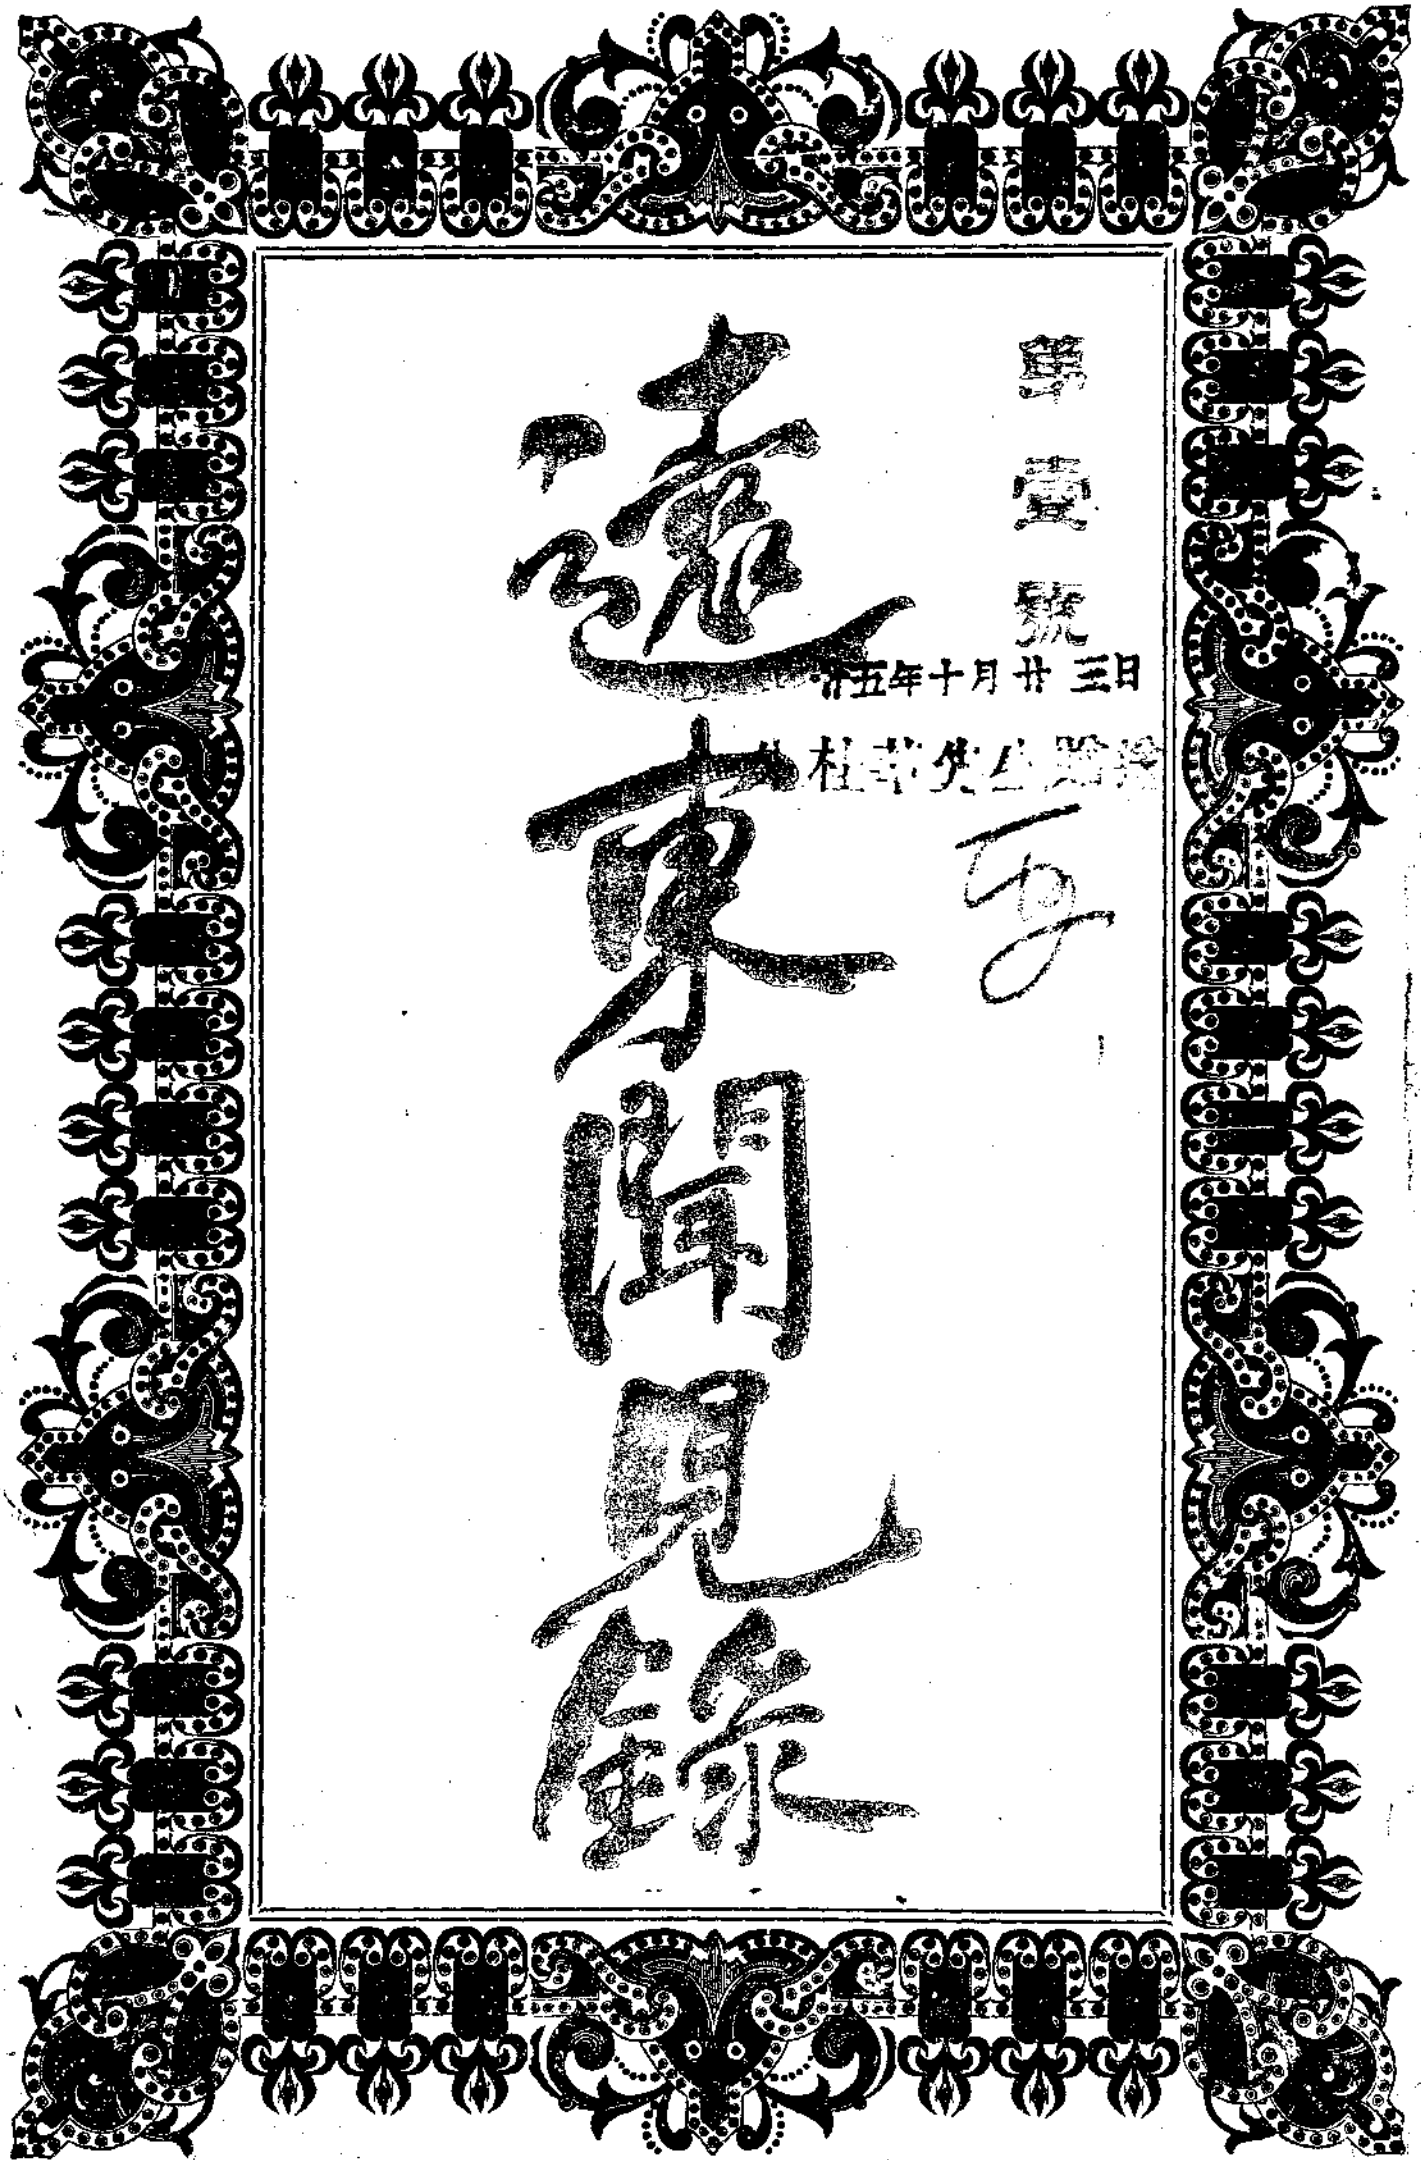 第壹號
廿五年十月廿三日
杜
遠東聞見錄